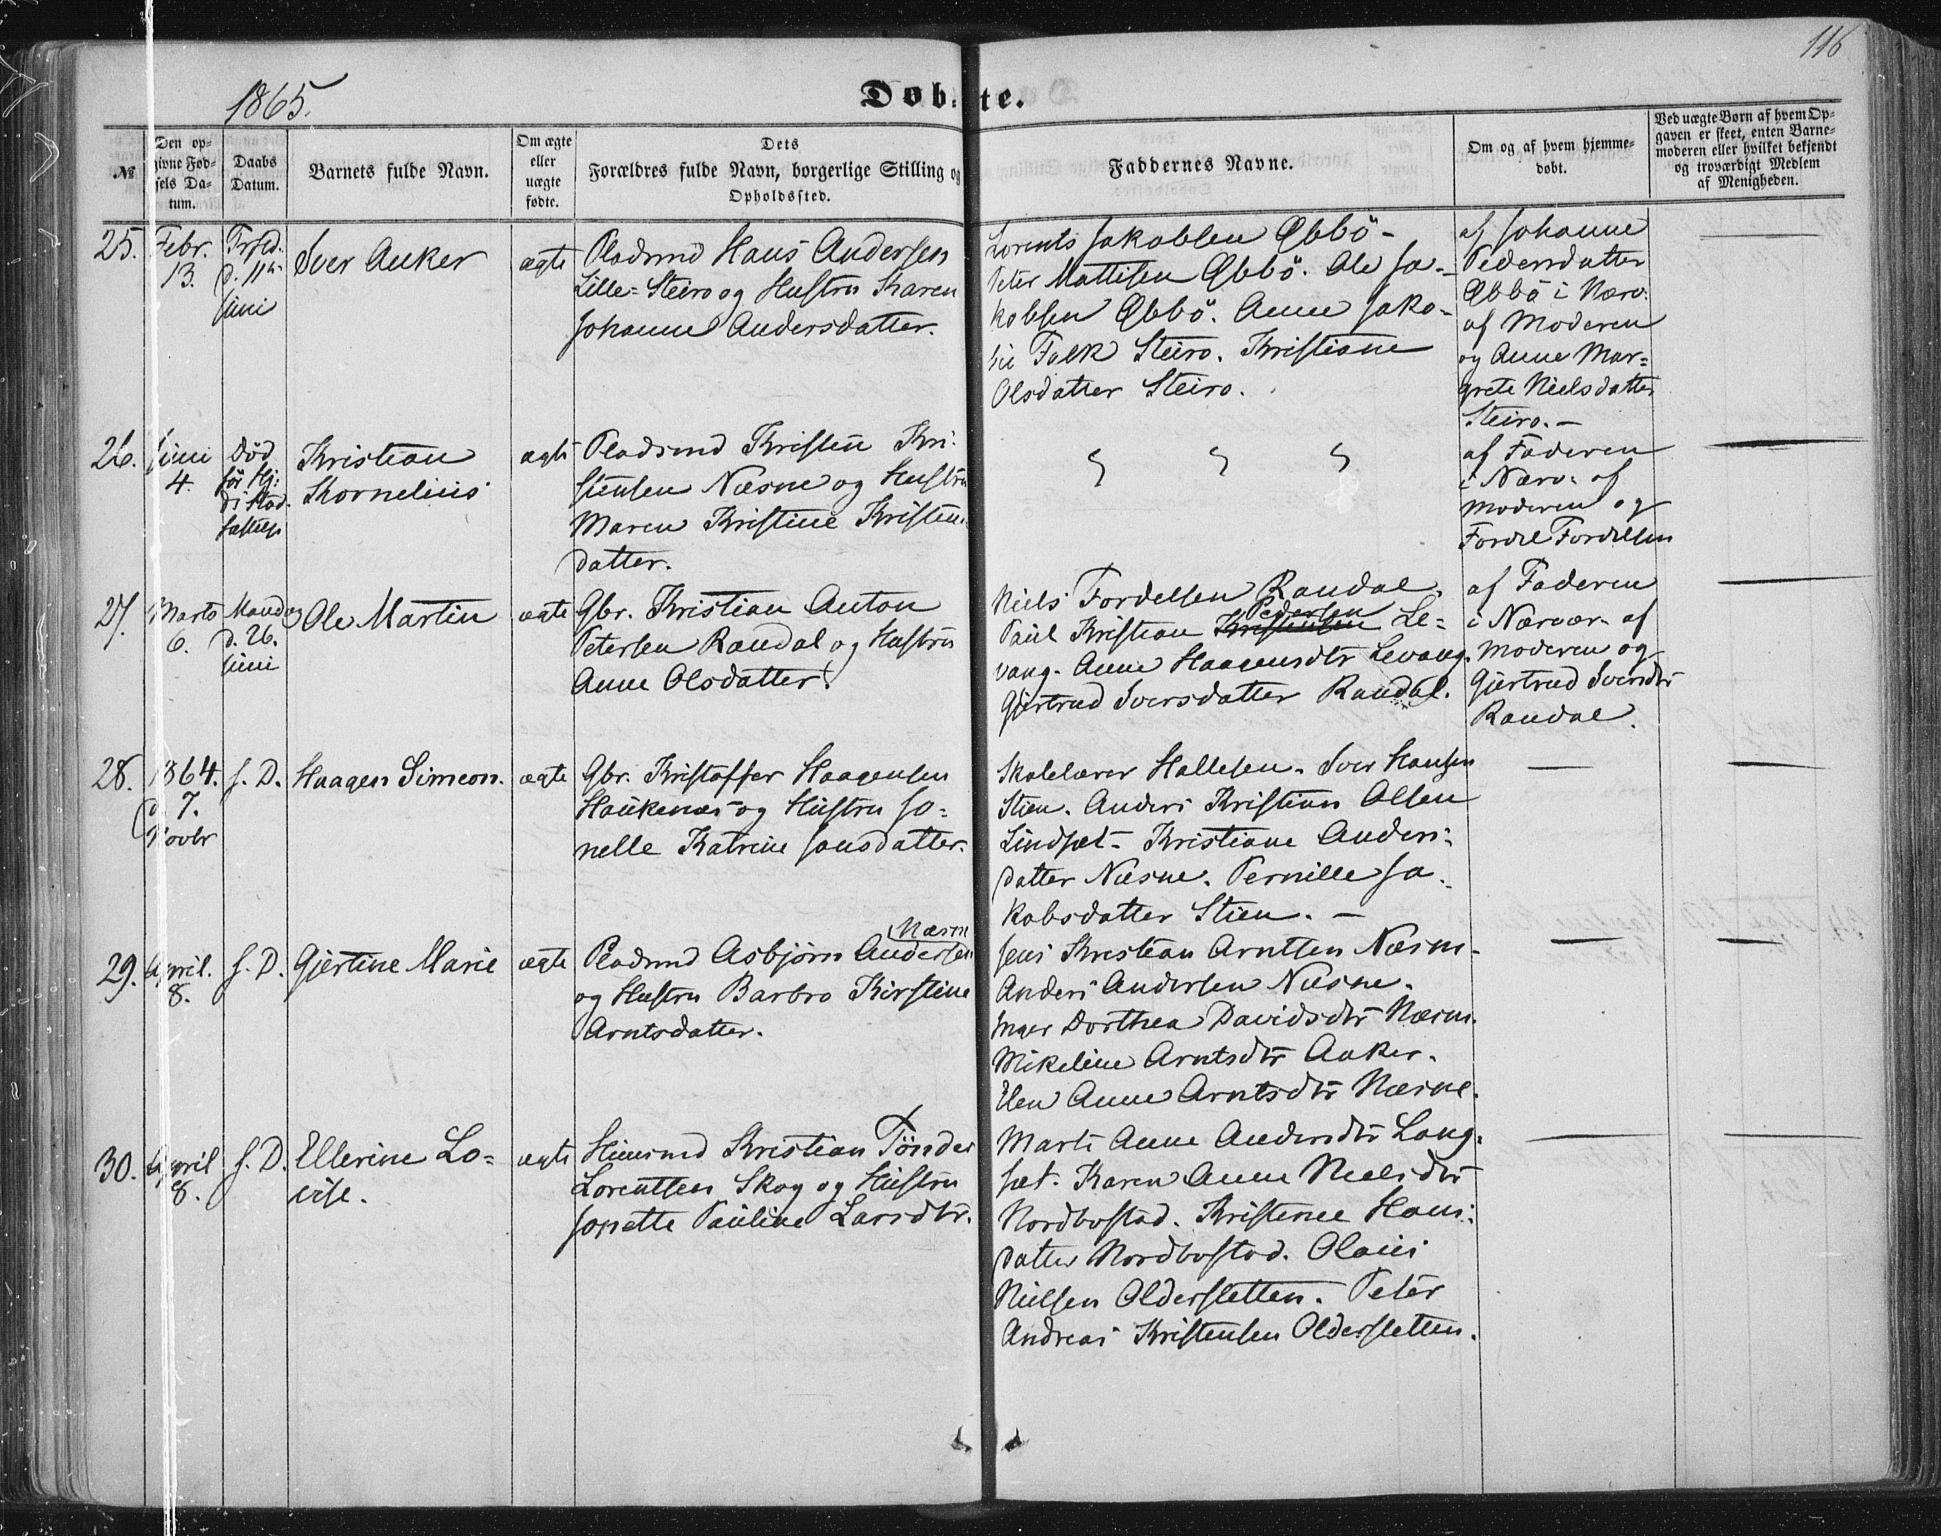 116
1865.
Døbte.
№
Den opgivne Fødsels Datum.
Daabs Datum.
Barnets fulde Navn.
Om ægte eller uægte fødte.
Dets Forældres fulde Navn, borgerlige Stilling og Opholdssted.
Faddernes Navne.
Om og af hvem hjemmedøbt.
Ved uægte Børn af hvem Opgaven er skeet, enten Barnemoderen eller hvilket bekjendt og troværdigt Medlem af Menigheden.
25.
Febr.
13.
d. 11te
Juni
Iver Anker
ægte
Pladsmd Hans Andersen
Lille-Steiro og Hustru Karen
Johanne Andersdatter.
Lorents Jakobsen Æbbö-
Peter Mattisen Æbbö. Ole Ja-
kobsen Æbbö. Anne Jako-
bie Falk Steiro. Kristiane
Olsdatter Steiro.
af Johanne
Pedersdatter
Æbbö i Nærv.
af Moderen
og Anne Mar-
grete Nielsdatter
Steiro.-
26.
Juni
4.
Død
før Hj:
ds Stad-
fæstelse
Kristian
Kornelius
ægte
Pladsmd Kristen Kri-
stensen Næsne og Hustru
Maren Kristine Kristens-
datter.
af Faderen
i Nærv. af
Moderen og
Fordel Fordelsen
27.
Marts
6.
Mandag
d. 26.
Juni
Ole Martin
ægte
Gbr. Kristian Anton
Petersen Randal og Hustru
Anne Olsdatter.
Niels Fordelsen Randal.
Pedersen
Paul Kristian Kristensen Le-
vang. Anne Haagensdtr Levang.
Gjertrud Iversdatter Randal.
af Faderen
i Nærvær. af
Moderen og
Gjertrud Iversdtr
Randal.
28.
1864.
d 7.
Novbr
s. D.
Haagen Simeon.
ægte
Gbr. Kristoffer Haagensen
Haukenæs og Hustru Jo-
nelle Katrine Jonsdatter.
Skolelærer Hallesen. Iver Hansen
Stien. Anders Kristian Olsen
Lindset- Kristiane Anders-
datter Næsne. Pernille Ja-
kobsdatter Stien. -
29.
April.
8.
s. D.
Gjertine Marie
ægte
Næsne
Pladsmd Asbjørn Andersen
og Hustru Barbro Kirstine
Arntsdatter.
Jens Kristian Arntsen Næsne.
Anders Andersen Næsne.
Inger Dorthea Davidsdtr Næsne.
Mikeline Arntsdtr Anker.
Elen Anne Arntsdtr Næsne.
30.
April
8.
s. D.
Ellerine Lo-
vise.
ægte
Huusmd Kristian Tönder
Lorentsen Skog og Hustru
Josette Pauline Larsdtr.
Marti Anne Andersdtr Lang-
set. Karen Anne Nielsdtr
Nordbostad. Kristense Hans-
datter Nordbostad. Olaus
Nielsen Oldersletten. Peter
Andreas Kristensen Oldersletten.